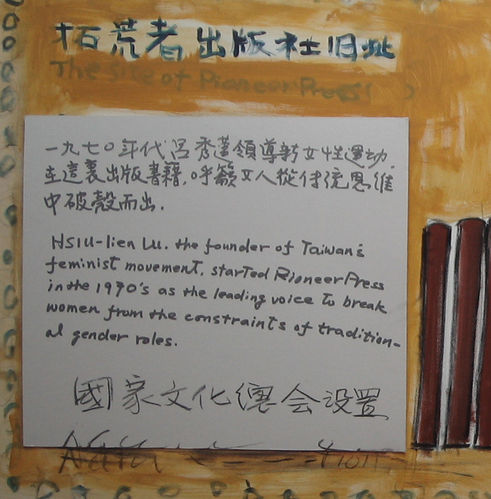 拓荒者出版社旧址
The site of Pioneer Press
一九七〇年代呂秀蓮領導新女性運動.
在這裏出版書籍,呼籲女人從傳統思維
中破殼而出.
Hsiu-lien Lu. the founder of Taiwan's
feminist movement, started Pioneer Press
in the 1970's as the leading voice to break
women from the constraints of tradition-
al gender roles.
國家文化總会设置